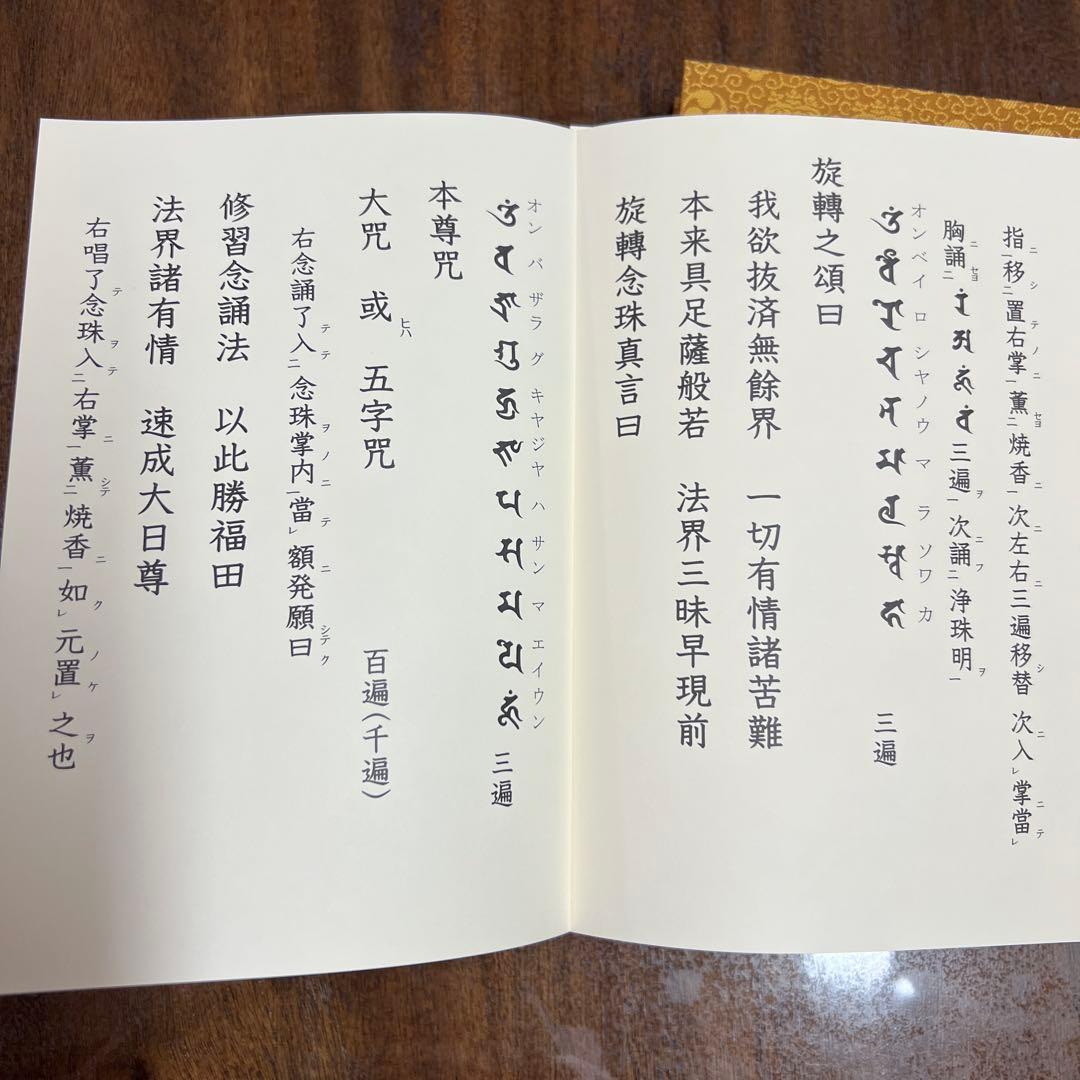 指移置右掌薫焼香次左右三遍移替 次入掌當
胸誦 三遍次誦浄珠明
オンベイロシヤノウマラソワカ
三遍
旋轉之頌曰
我欲抜済無餘界 一切有情諸苦難
本来具足薩般若 法界三昧早現前
旋轉念珠真言曰
オンバザラグキヤジヤハサンマエイウン
三遍
本尊咒
大咒 或ヒハ 五字咒 百遍(千遍)
右念誦了入念珠掌内當額発願曰
修習念誦法 以此勝福田
法界諸有情 速成大日尊
右唱了念珠入右掌薫焼香如元置之也